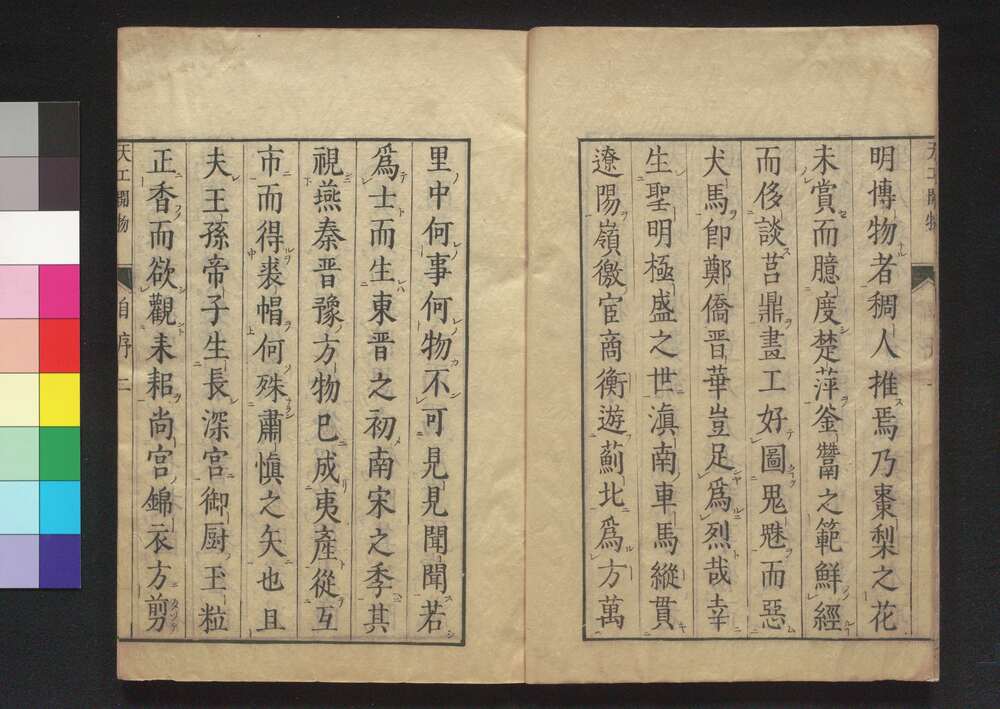 明博物者稠人推焉乃棗梨之花
未賞而臆度楚萍釜鬵之範鮮經
而侈談莒鼎畫工好圖鬼魅而惡
犬馬卽鄭僑晉華豈足爲烈哉幸
生聖明極盛之世滇南車馬縱貫
遼陽嶺徼宦商衡遊薊北爲方萬
里中何事何物不可見見聞聞若
爲士而生東晉之初南宋之季其
視燕秦晉豫方物已成夷產從互
市而得裘帽何殊肅愼之矢也且
夫王孫帝子生長深宮御厨玉粒
正香而欲觀耒耜尚宮錦衣方剪
天工開物 自序 二